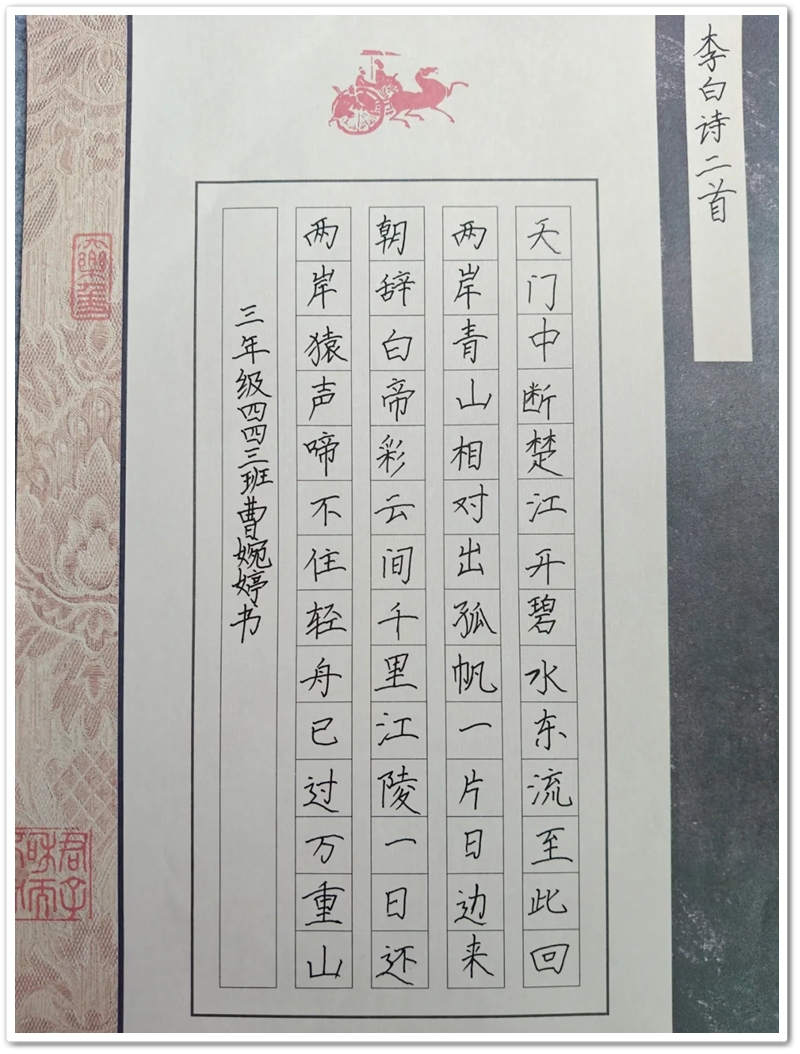 李白诗二首
天门中断楚江开碧水东流至此回
两岸青山相对出孤帆一片日边来
朝辞白帝彩云间千里江陵一日还
两岸猿声啼不住轻舟已过万重山
三年级四四三班曹婉婷书